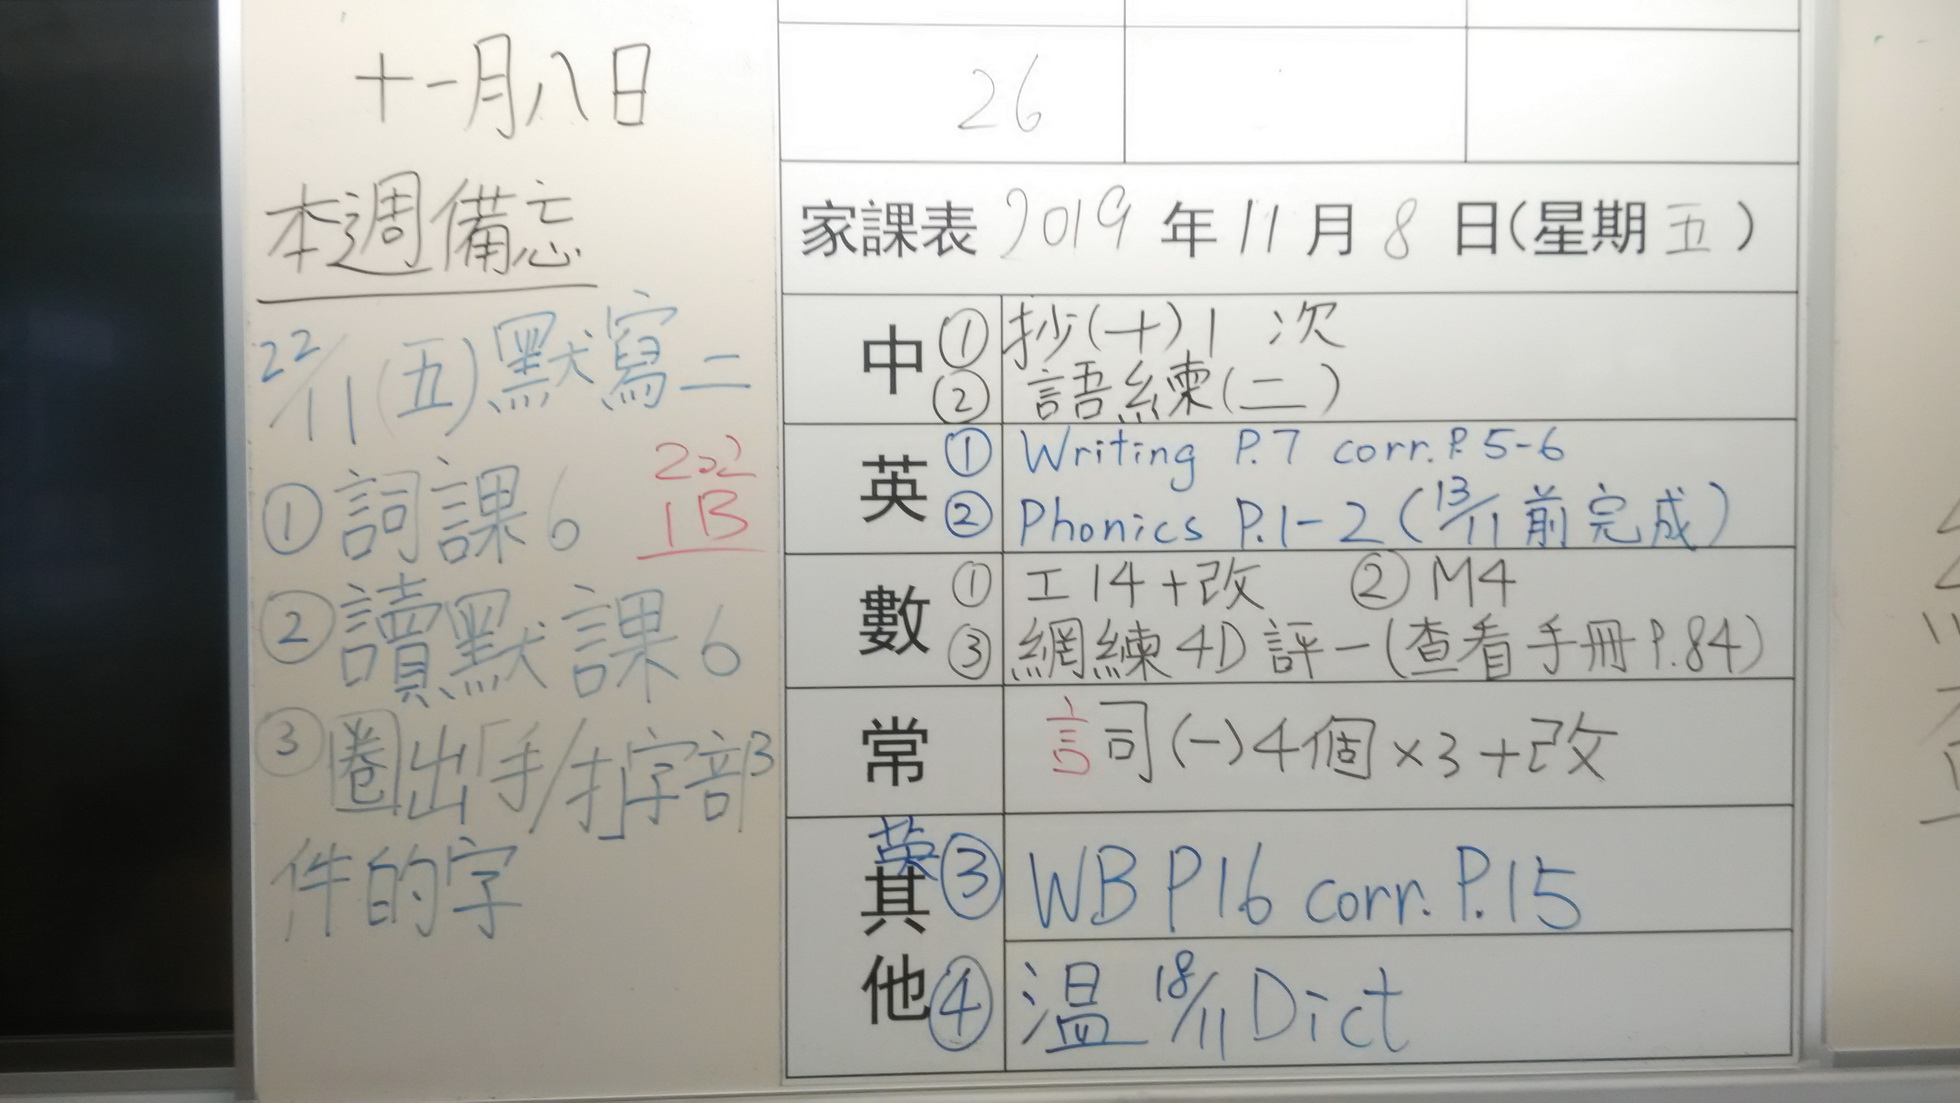 十一月八日
本週備忘
22/11(五)默寫二
①詞課6
1B
②讀默課6
③圈出「手/扌」字部
件的字
26
家課表 2019 年 11 月 8 日(星期五)
中 ① 抄(十)1 次
② 語練(二)
英 ① Writing P.7 corr.P.5-6
② Phonics P.1-2(13/11前完成)
數 ① 工14+改 ② M4
③ 網練4D評一(查看手冊P.84)
常 詞(一)4個×3+改
其他 英③ WB P16 corr. P.15
④ 溫 18/11 Dict